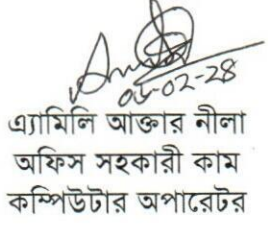 ০৬-০২-২৪
এ্যামিলি আক্তার নীলা
অফিস সহকারী কাম
কম্পিউটার অপারেটর